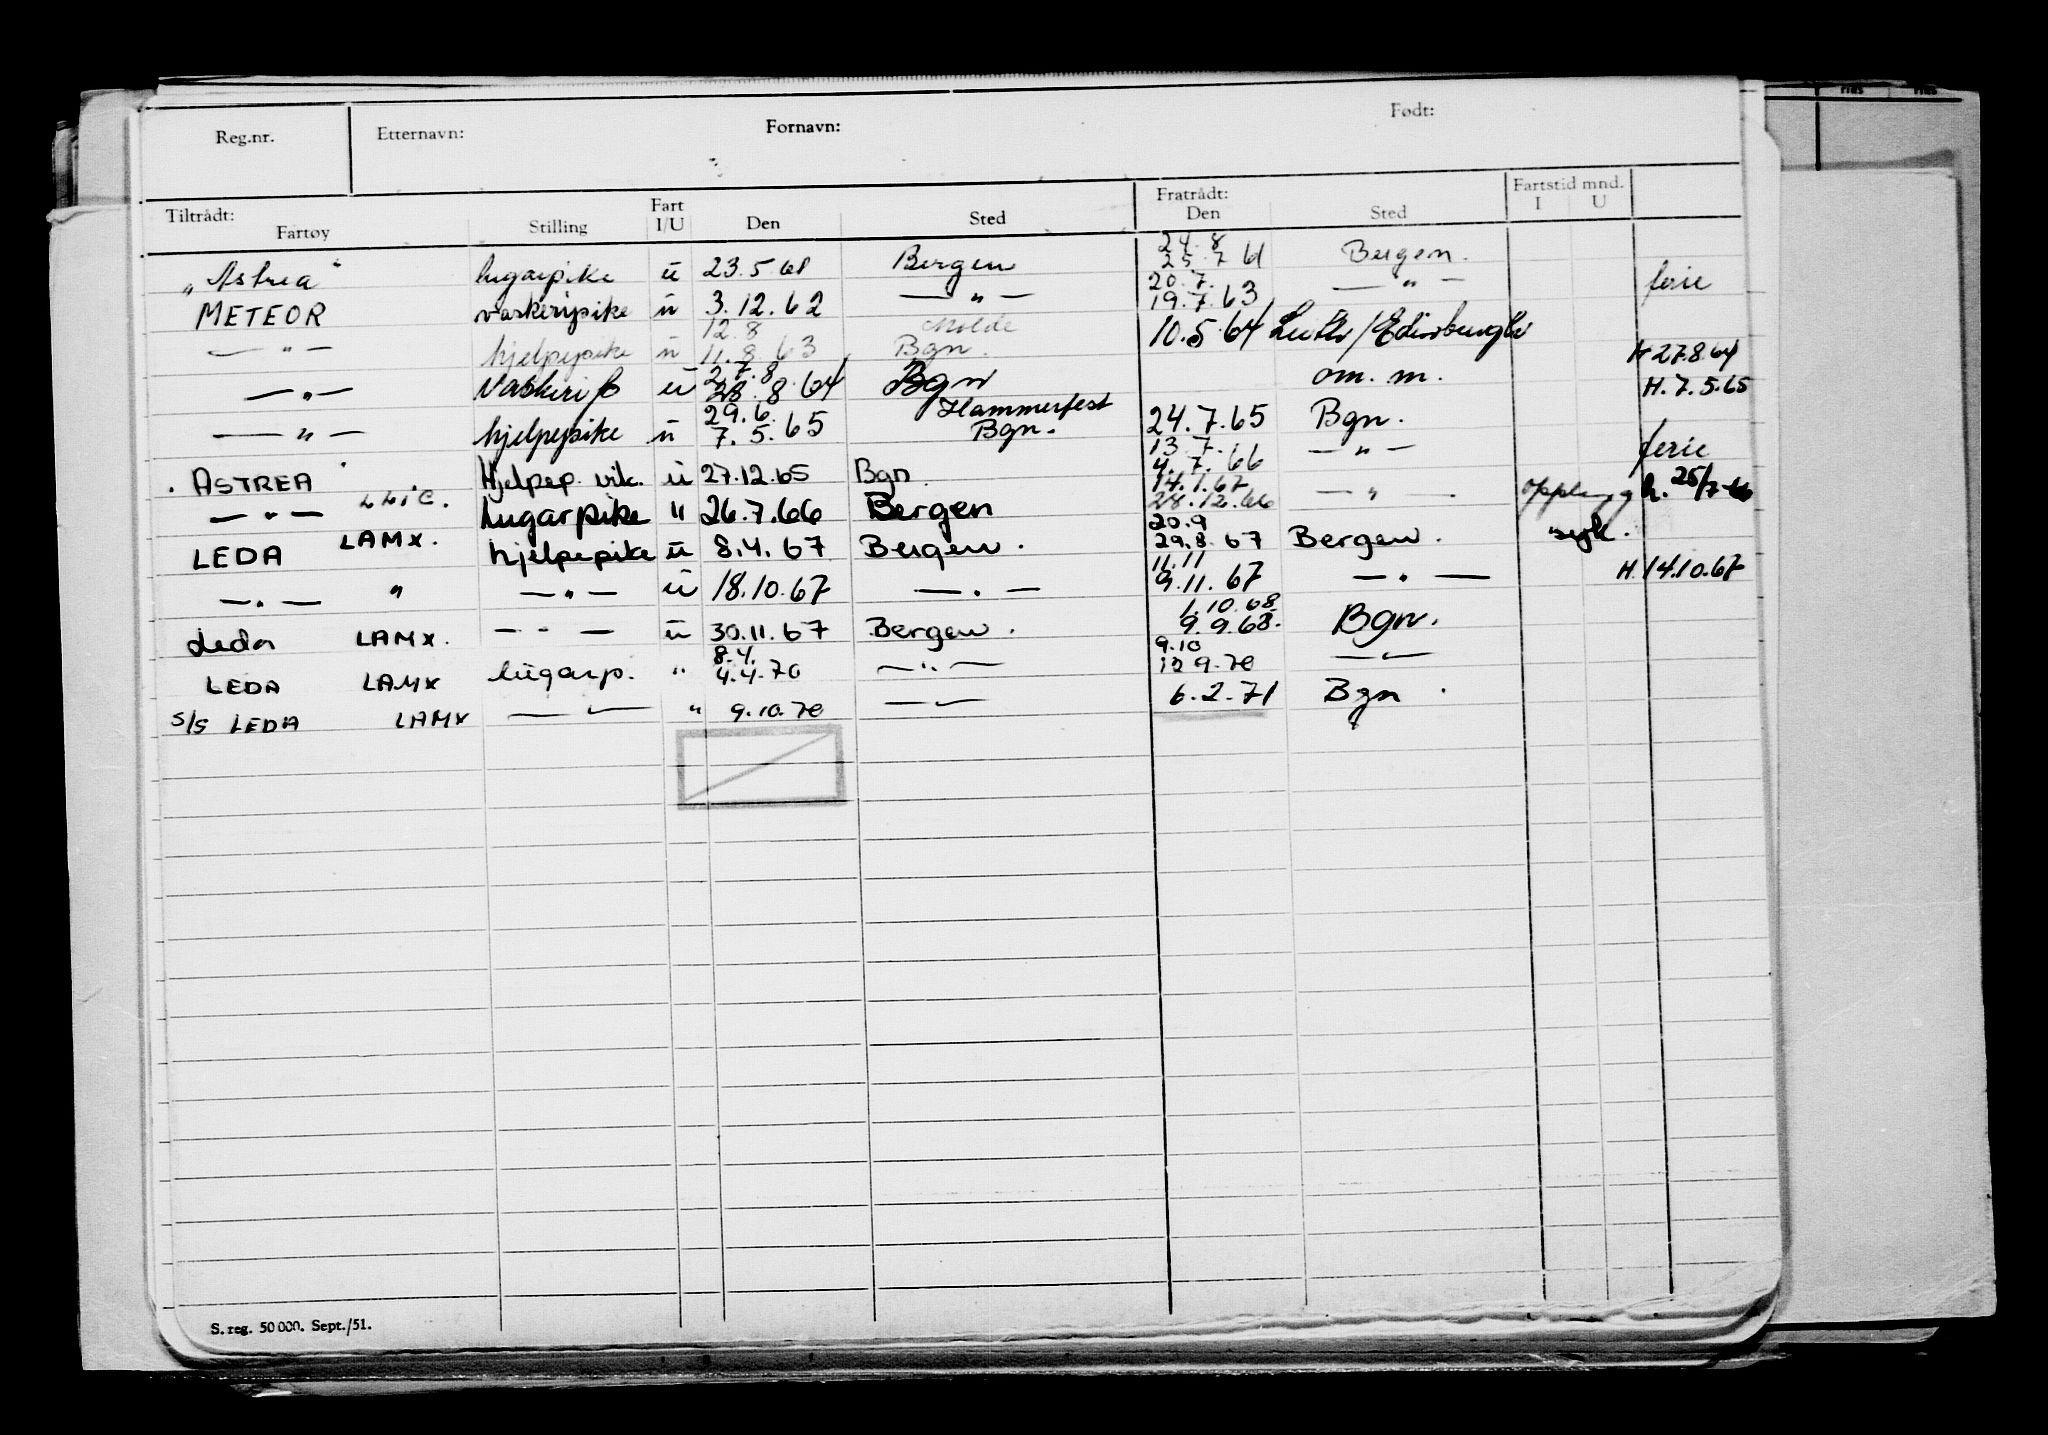 Reg.nr. Etternavn: Fornavn: Født:
Tiltrådt: Fartøy Stilling Fart I/U Den Sted Fratrådt: Den Sted Fartstid mnd. I U
24.8
„Astrea" lugarpike u 23.5.61 Bergen 25.7 61 Bergen.
20.7.
METEOR vaskeripike u 3.12.62 — " — 19.7.63 — " — ferie
12.8 Molde
— " — hjelpepike u 11.8.63 Bgn. 10.5.64 Leith/Edinburgh
27.8 H 27.8.64
— " — vaskeri p u 28.8.64 Bgn om. m. H. 7.5.65
29.6. Hammerfest
— " — hjelpepike u 7.5.65 Bgn. 24.7.65 Bgn.
13.7.
ASTREA Hjelpep. vik. u 27.12.65 Bgn. 4.7.66 — " — ferie
14.1.67
— " — LLIC. lugarpike " 26.7.66 Bergen 28.12.66 — " — opplagg h. 25/7-66
20.9
LEDA LAMX. hjelpepike u 8.4.67 Bergen. 29.8.67 Bergen. syk.
11.11
— " — " — " — u 18.10.67 — " — 9.11.67 — " — H 14.10.67
1.10.68
Leda LAMX. — " — u 30.11.67 Bergen. 9.9.68. Bgn.
8.4. 9.10
LEDA LAMX lugarp. " 4.4.70 — " — 9.70 — " —
S/S LEDA LAMX — " — " 9.10.70 — " — 6.2.71 Bgn
S. reg. 50 000. Sept./51.